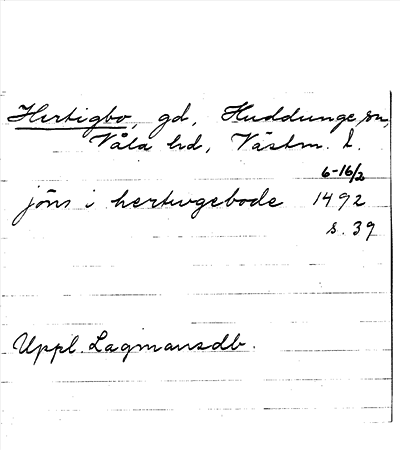 Hertigbo, gd, Huddunge sn,
Våla hd, Västm. l.
6-16/2
jöns i hertugebode 1492
s. 39
Uppl. Lagmansdb.